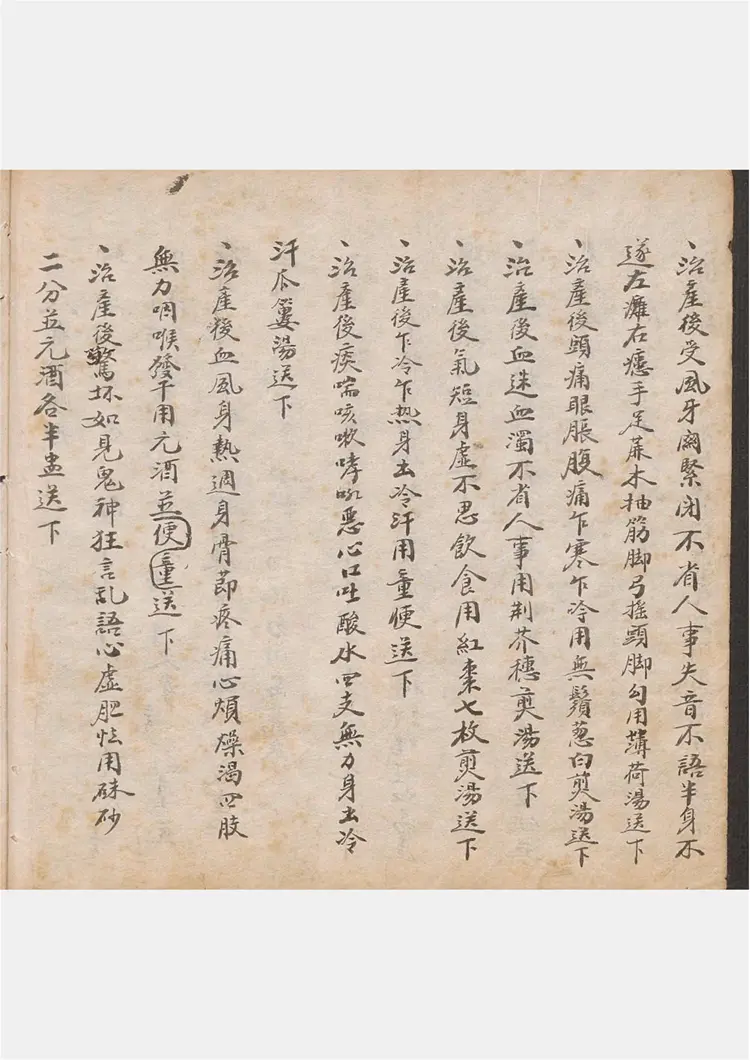 、治產後受風牙關緊閉不省人事失音不語半身不
遂左癱右瘓手足蔴木抽筋脚弓搖頭脚勾用薄荷湯送下
、治產後頭痛眼脹腹痛乍寒乍冷用無鬚葱白煎湯送下
、治產後血迷血濁不省人事用荆芥穗煎湯送下
、治產後氣短身虛不思飲食用紅棗七枚煎湯送下
、治產後乍冷乍热身出冷汗用童便送下
、治產後痰喘咳嗽哮吼惡心口吐酸水四支無力身出冷
汗瓜蔞湯送下
、治產後血風身熱週身骨莭疼痛心煩燥渴四肢
無力咽喉發干用元酒並便童送下
、治產後驚坏如見鬼神狂言乱語心虛肥怯用硃砂
二分並元酒各半盅送下